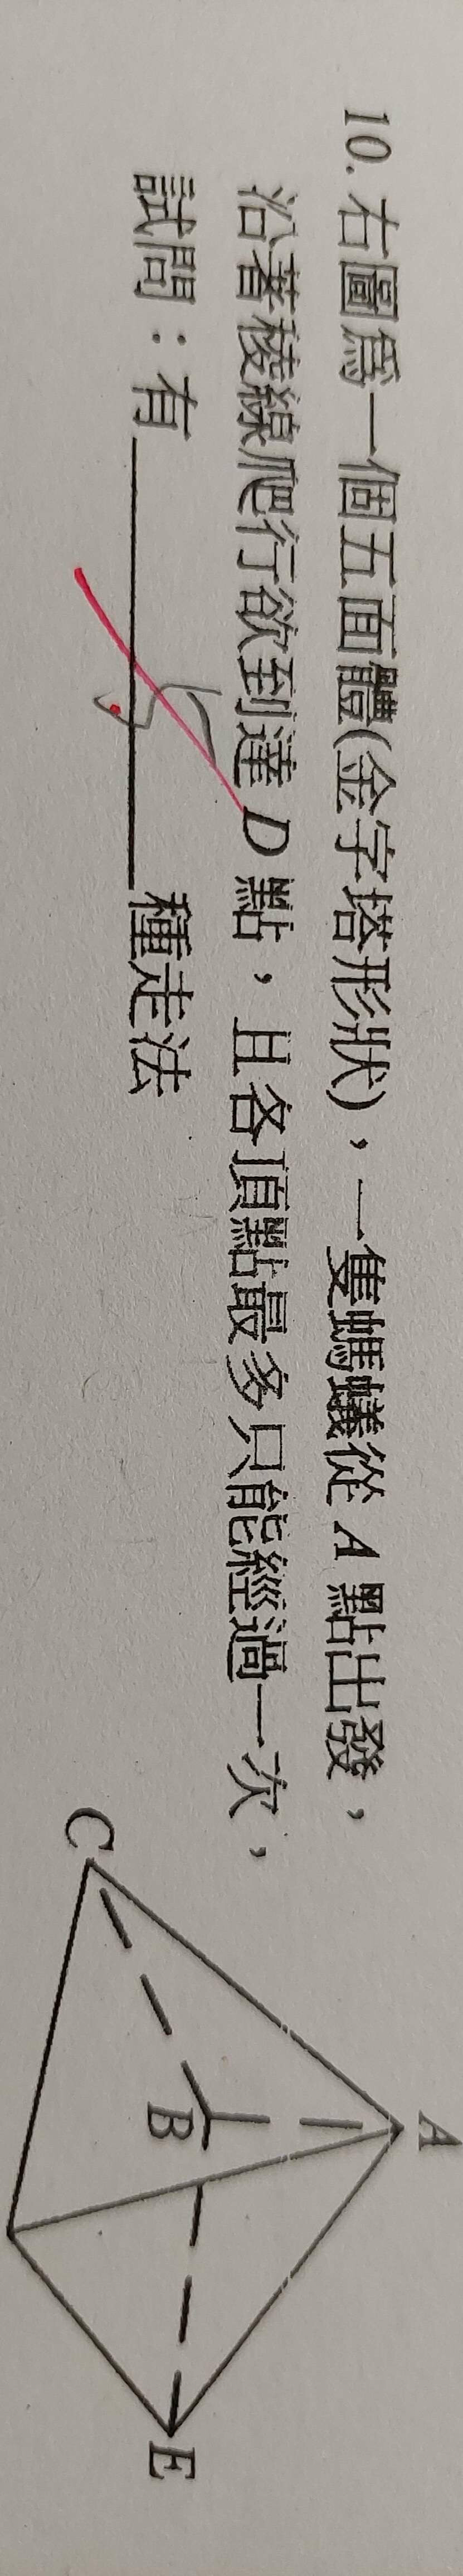 10. 右圖為一個五面體(金字塔形狀)，一隻螞蟻從 A 點出發，
沿著稜線爬行欲到達 D 點，且各頂點最多只能經過一次，
試問：有 15 種走法
A
B
C
E